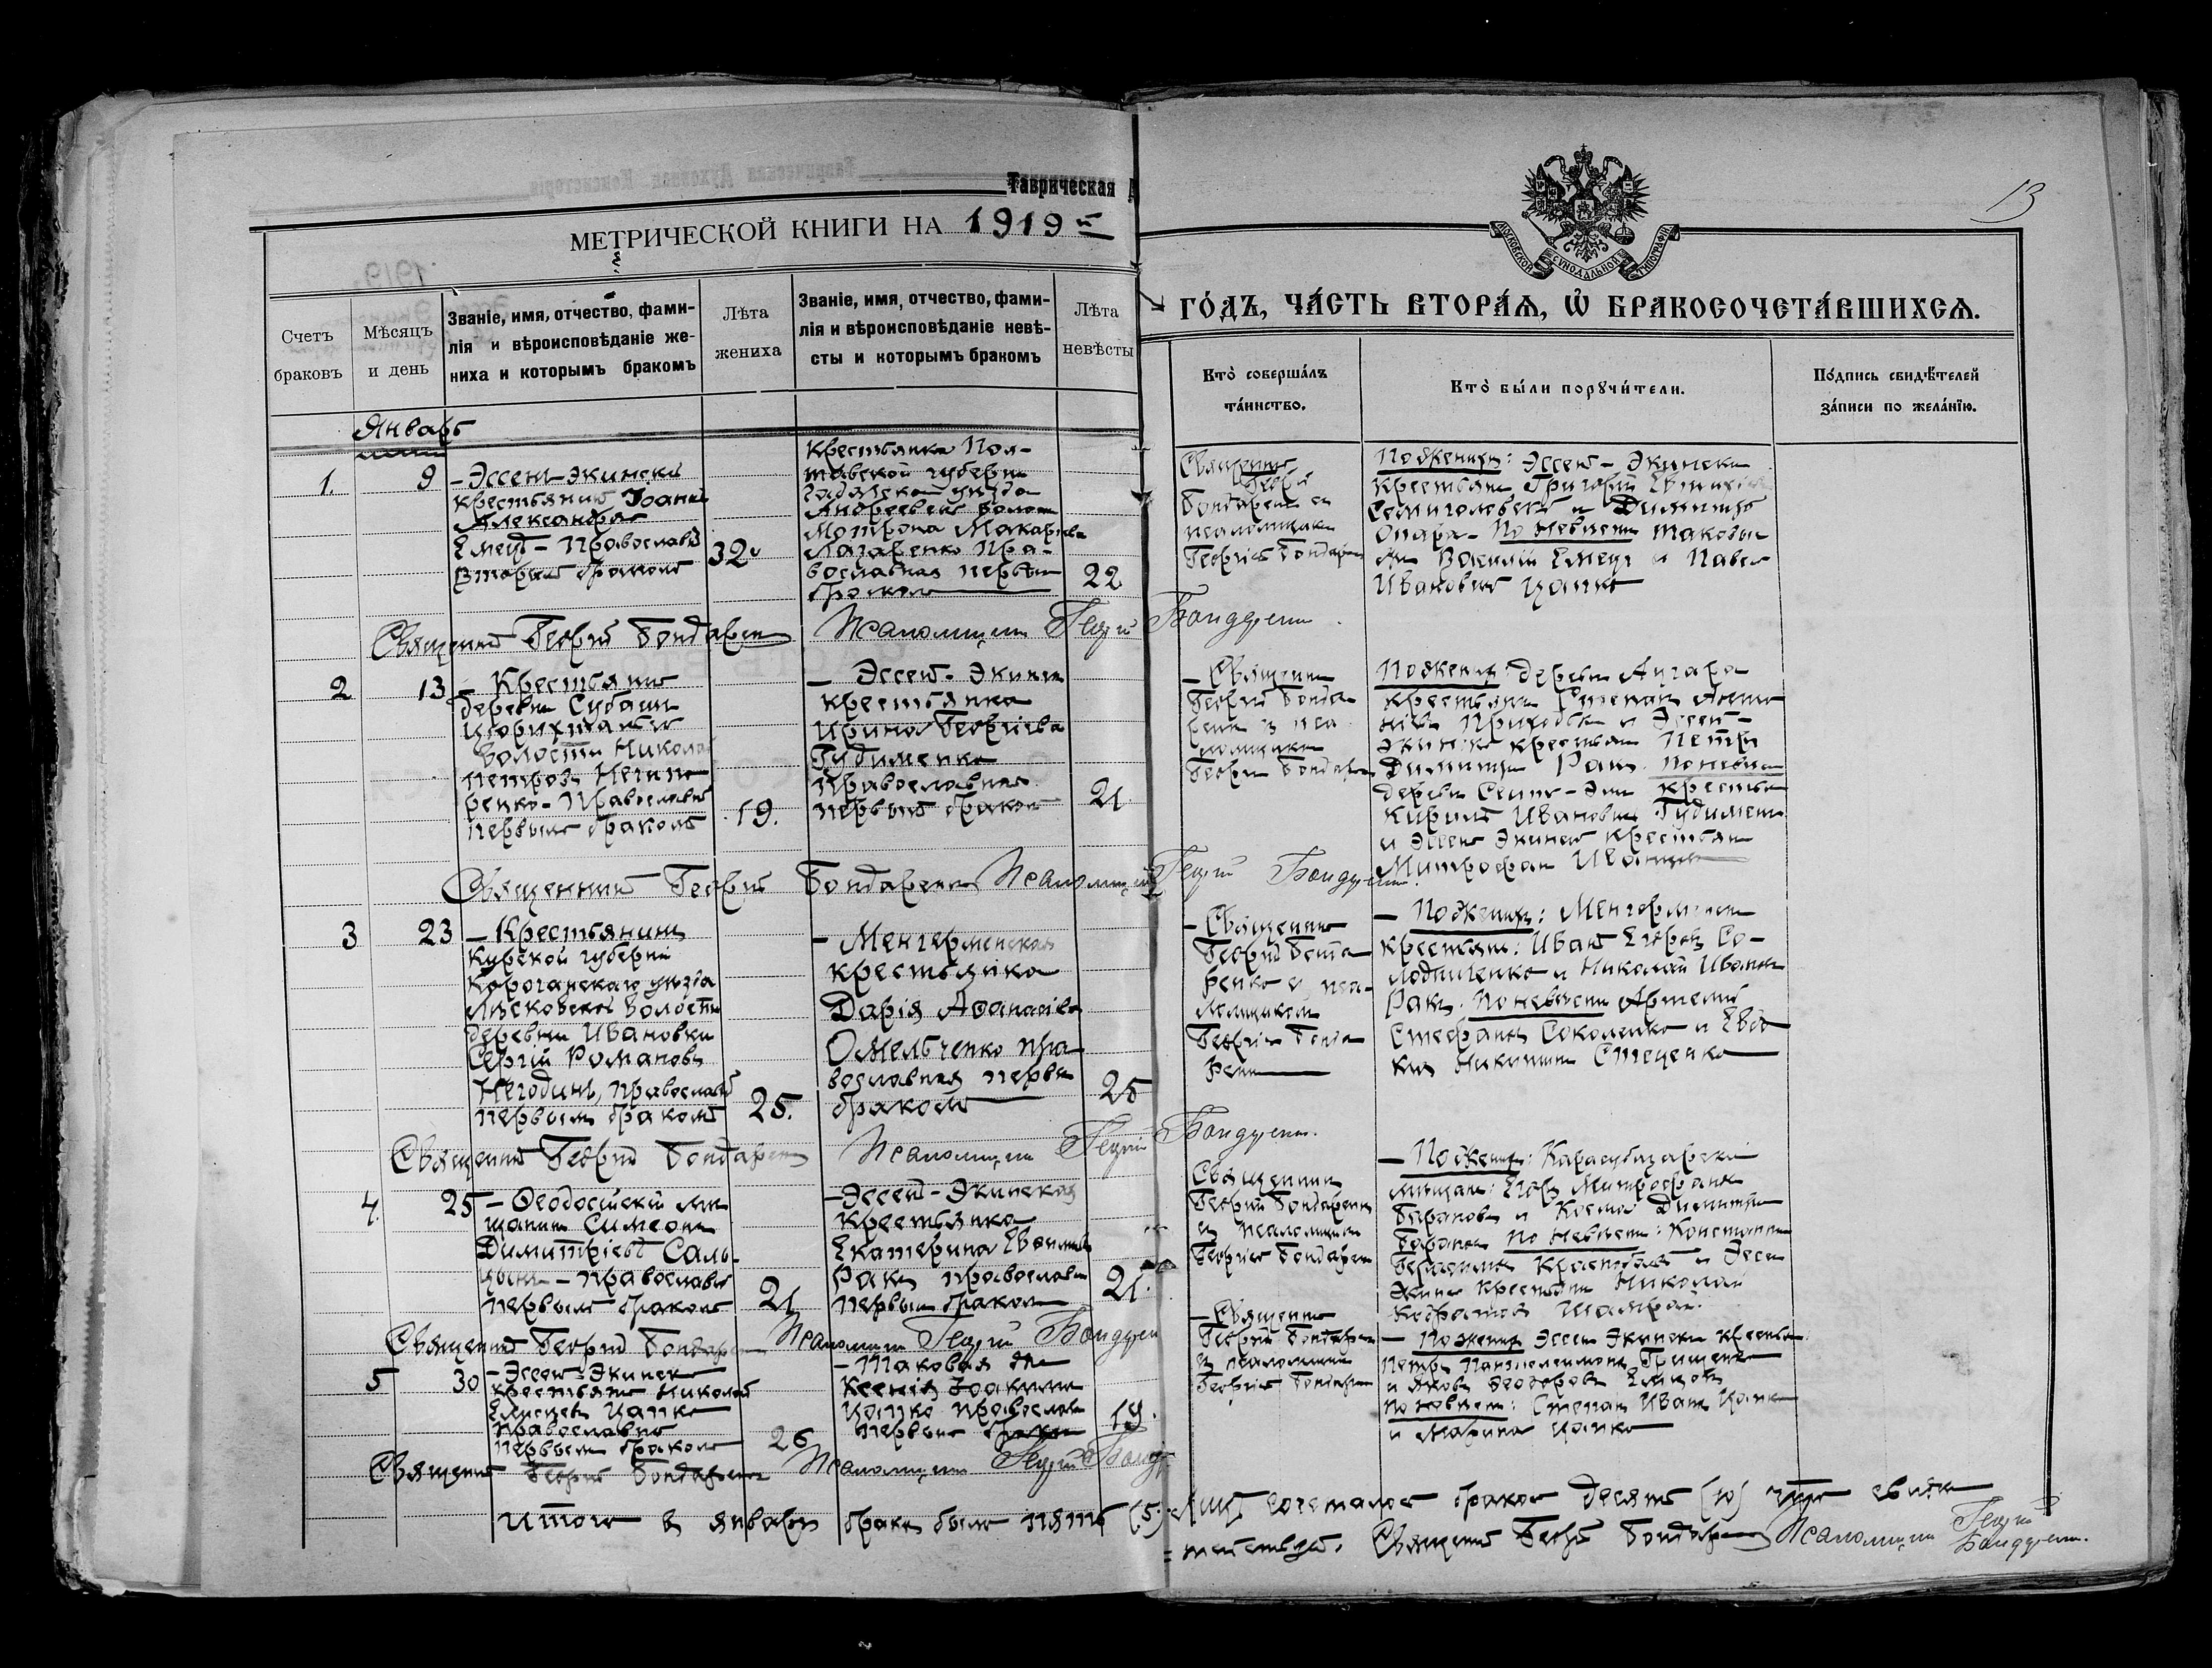 Таврическая
МЕТРИЧЕСКОЙ КНИГИ НА 1919й
13
МОСКОВСКОЙ СѴНОДАЛЬНОЙ ТИПОГРАФІИ
ГО́ДЪ, ЧА́СТЬ ВТОРА́Я, Ѿ БРАКОСОЧЕТА́ВШИХСЯ.
Счетъ
браковъ
Мѣсяцъ
и день
Званіе, имя, отчество, фами-
лія и вѣроисповѣданіе же-
ниха и которымъ бракомъ
Лѣта
жениха
Званіе, имя, отчество, фами-
лія и вѣроисповѣданіе невѣ-
сты и которымъ бракомъ
Лѣта
невѣсты
Кто̀ соверша́лъ
та́инство.
Кто̀ бы́ли порꙋчи́тели.
По́дпись свидѣ́телей
за́писи по жела́нїю.
Январь
1.
9
- Эссенъ-Экинскій
крестьянинъ Іоаннъ
Александровъ
Емецъ - Православный
вторымъ бракомъ
32
Крестьянка Пол-
тавской губерніи
уѣзда
Андреевской волости
Мотрона Макаріева
Лазаренко Пра-
вославная первымъ
бракомъ
22
Священникъ
Георгій
Бондаренко съ
псаломщикомъ
Георгіемъ Бондаренко
По женихѣ: Эссенъ-Экинскіе
крестьяне Григорій
и Димитрій
Опара - По невѣстѣ таковые
же Василій Емецъ и Павелъ
Ивановичъ Цапко
Священникъ Георгій Бондаренко Псаломщикъ Георгій Бондаренко
2
13
- Крестьянинъ
деревни Субаши
Цюрихтальской
волости Николай
Петровъ Нечипо-
ренко - Православный
первымъ бракомъ
19.
- Эссенъ-Экинская
крестьянка
Ирина Георгіева
Гудименко
Православная
первымъ бракомъ
21
- Священникъ
Георгій Бонда-
ренко и пса-
ломщикъ
Георгій Бондаренко
По женихѣ: деревни
крестьянинъ Степанъ
Приходько и Эссенъ-
Экинскій крестьянинъ Петръ
Димитріевъ Ракъ. По невѣстѣ
деревни крестьянинъ
Кириллъ Ивановичъ Гудименко
и Эссенъ Экинскій крестьянинъ
Митрофанъ
Священникъ Георгій Бондаренко Псаломщикъ Георгій Бондаренко.
3
23
- Крестьянинъ
Курской губерніи
Корочанскаго уѣзда
волости
деревни Ивановки
Сергій Романовъ
Негодинъ, православный
первымъ бракомъ
25.
- Менгерменская
крестьянка
Дарія Аѳанасіева
Омельченко пра-
вославная первымъ
бракомъ
25
- Священникъ
Георгій Бонда-
ренко и пса-
ломщикомъ
Георгіемъ Бонда-
ренко
- По женихѣ: Менгерменскіе
крестьяне: Иванъ Егоровъ Со-
лодиченко и Николай Ивановъ
Ракъ. По невѣстѣ Артемій
Стефановъ Соколенко и Евдо-
кія Никитина Стеценко
Священникъ Георгій Бондаренко Псаломщикъ Георгій Бондаренко.
4.
25
- Ѳеодосійскій мѣ-
щанинъ Симеонъ
Димитріевъ
- православный
первымъ бракомъ
21
- Эссенъ-Экинская
крестьянка
Екатерина
Ракъ православная
первымъ бракомъ
21.
Священникъ
Георгій Бондаренко
и псаломщикъ
Георгій Бондаренко
- По женихѣ: Карасубазарскіе
мѣщане: Егоръ Митрофановъ
Барановъ и Косма Димитріевъ
По невѣстѣ: Константинъ
и Эссенъ
Экинскій крестьянинъ Николай
Священникъ Георгій Бондаренко Псаломщикъ Георгій Бондаренко
5
30
- Эссенъ-Экинскій
крестьянинъ Николай
Елисеевъ Цапко
православный
первымъ бракомъ
26
- Таковая же
Ксенія Іоакимова
Цапко православная
первымъ бракомъ
19.
- Священникъ
Георгій Бондаренко
и псаломщикъ
Георгій Бондаренко
- По женихѣ Эссенъ Экинскіе крестьяне:
Петръ Пантелеимоновъ Грищенко
и Яковъ Ѳеодоровъ
по невѣстѣ: Степанъ Ивановъ Цапко
и Марина Цапко
Священникъ Георгій Бондаренко Псаломщикъ Георгій Бондаренко
Итого въ январѣ браковъ было пять (5.) Лицъ сочеталось бракомъ десять (10) чѣмъ свидѣ-
= тельствуемъ. Священникъ Георгій Бондаренко Псаломщикъ Георгій
Бондаренко.